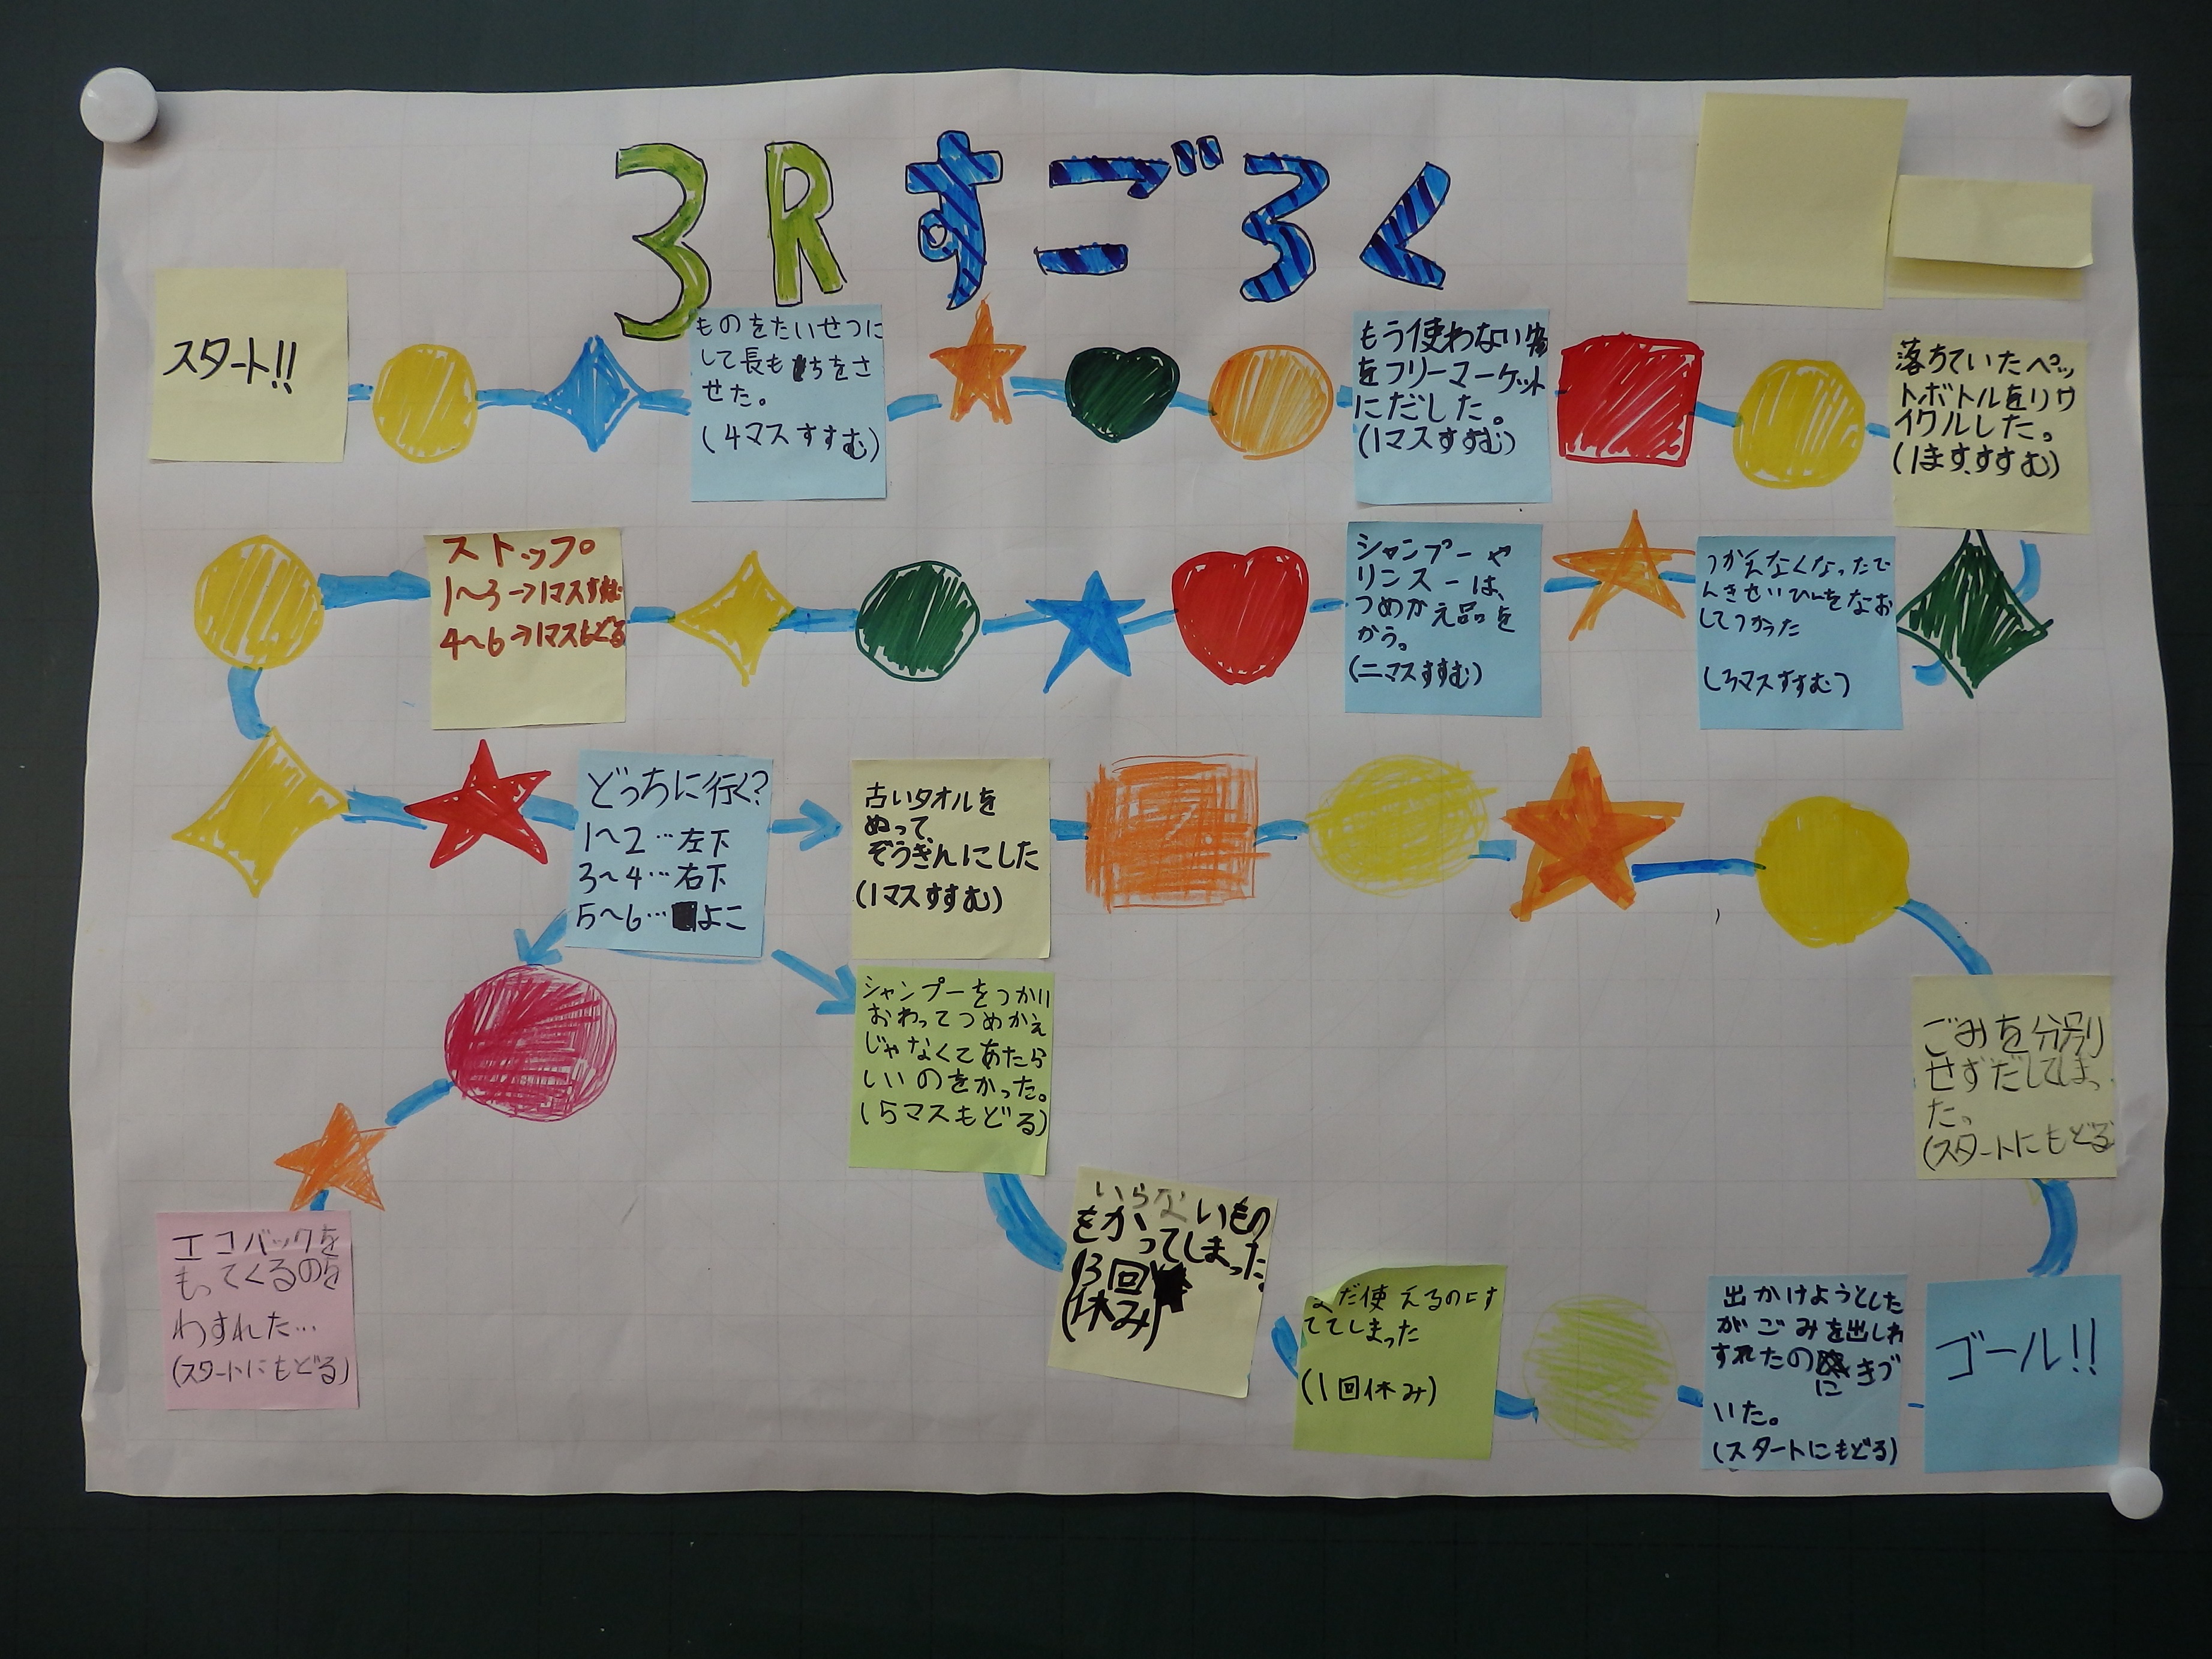 3Rすごろく
スタート!!
ものをたいせつに
して長もちをさ
せた。
(4マスすすむ)
もう使わない物
をフリーマーケット
にだした。
(1マスすすむ)
落ちていたペッ
トボトルをリサ
イクルした。
(1ます、すすむ)
ストップ
1〜3→1マスすすむ
4〜6→1マスもどる
シャンプーや
リンスーは、
つめかえ品を
かう。
(二マスすすむ)
つかえなくなったで
んきせいひんをなお
してつかった
(3マスすすむ)
どっちに行く?
1〜2…左下
3〜4…右下
5〜6…よこ
古いタオルを
ぬって、
ぞうきんにした
(1マスすすむ)
シャンプーをつかい
おわってつめかえ
じゃなくてあたら
しいのをかった。
(5マスもどる)
ごみを分別
せずだしてしまっ
た。
(スタートにもどる
エコバックを
もってくるのを
わすれた…
(スタートにもどる)
いらないもの
をかってしまった。
(3回
休み)
まだ使えるのにす
ててしまった
(1回休み)
出かけようとした
がごみを出しわ
すれたのにきづ
いた。
(スタートにもどる)
ゴール!!